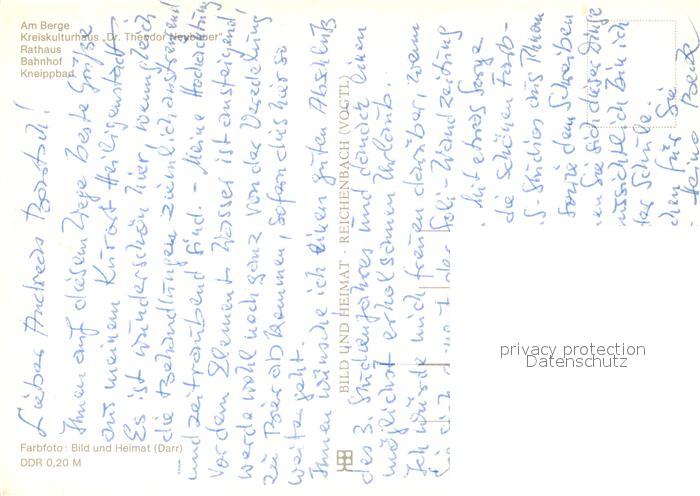 Am Berge
Kreiskulturhaus „Dr. Theodor Neubauer"
Rathaus
Bahnhof
Kneippbad
Lieber Andreas
Ihnen auf diesem Wege beste Grüße
aus meinem Kurort Heiligenstadt
Es ist wunderschön hier, wenngleich
die Behandlungen ziemlich anstrengend
und zeitraubend sind. - Meine Hochachtung
vor dem Element Wasser ist ansteigend,
werde wohl noch ganz von der Veredelung
zu Bier abkommen, sofern das hier so
weiter geht.
Ihnen wünsche ich einen guten Abschluß
des 3. Studienjahres und danach einen
möglichst erholsamen Urlaub.
Ich würde mich freuen darüber, wenn
der Wandzeitung
mit etwas Sorge
die schönen Farb-
-Studios aus
sowie dem Schreiben
Sie sich dieser Dinge
bin ich
der Schule.
für Sie
BILD UND HEIMAT · REICHENBACH (VOGTL)
privacy protection
Datenschutz
Farbfoto: Bild und Heimat (Darr)
DDR 0,20 M